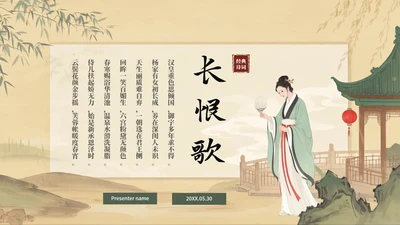 长恨歌
经典
诗词
汉皇重色思倾国 御宇多年求不得
杨家有女初长成 养在深闺人未识
天生丽质难自弃 一朝选在君王侧
回眸一笑百媚生 六宫粉黛无颜色
春寒赐浴华清池 温泉水滑洗凝脂
侍儿扶起娇无力 始是新承恩泽时
云鬓花颜金步摇 芙蓉帐暖度春宵
Presenter name
20XX.05.30